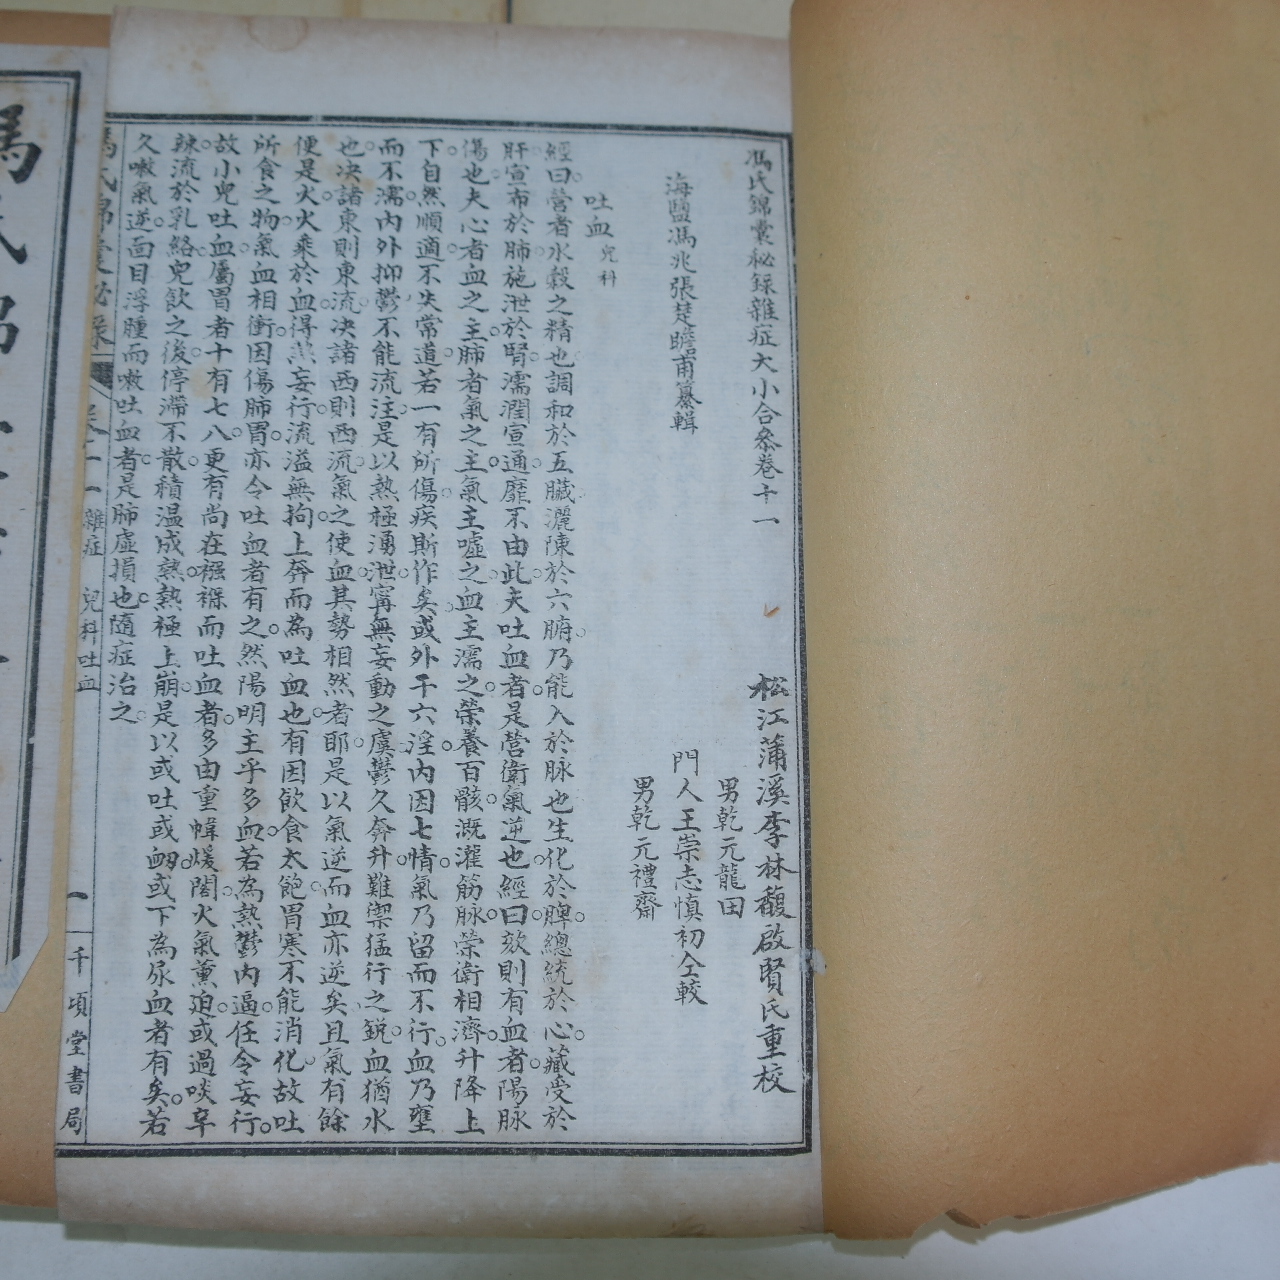 馮氏錦囊秘録雜症大小合叅卷十一
松江蒲溪李林馥啟賢氏重校
海鹽馮兆張楚瞻甫纂輯
男乾元龍田
門人王崇志慎初仝較
男乾元禮齋
吐血兒科
經曰營者水穀之精也調和於五臟灑陳於六腑乃能入於脉也生化於脾總統於心藏受於
肝宣布於肺施泄於腎濡潤宣通靡不由此夫吐血者是營衛氣逆也經曰欬則有血者陽脉
傷也夫心者血之主肺者氣之主氣主噓之血主濡之榮養百骸溉灌筋脉榮衛相濟升降上
下自然順適不失常道若一有所傷疾斯作矣或外千六淫内因七情氣乃留而不行血乃壅
而不濡内外抑鬱不能流注是以熱極湧泄寧無妄動之虞鬱久奔升難禦猛行之鋭血猶水
也决諸東則東流决諸西則西流氣之使血其勢相然者耶是以氣逆而血亦逆矣且氣有餘
便是火火乘於血得熱妄行流溢無拘上奔而為吐血也有因飲食太飽胃寒不能消化故吐
所食之物氣血相衝因傷肺胃亦令吐血者有之然陽明主乎多血若為熱鬱内逼任令妄行
故小兒吐血屬胃者十有七八更有尚在襁褓而吐血者多由重幃煖閣火氣薰迫或過啖辛
辣流於乳絡兒飲之後停滯不散積温成熱熱極上崩是以或吐或衂或下為尿血者有矣若
久嗽氣逆面目浮腫而嗽吐血者是肺虛損也隨症治之
馮氏錦囊秘録 卷十一 雜症 兒科吐血 一 千頃堂書局
馮氏錦